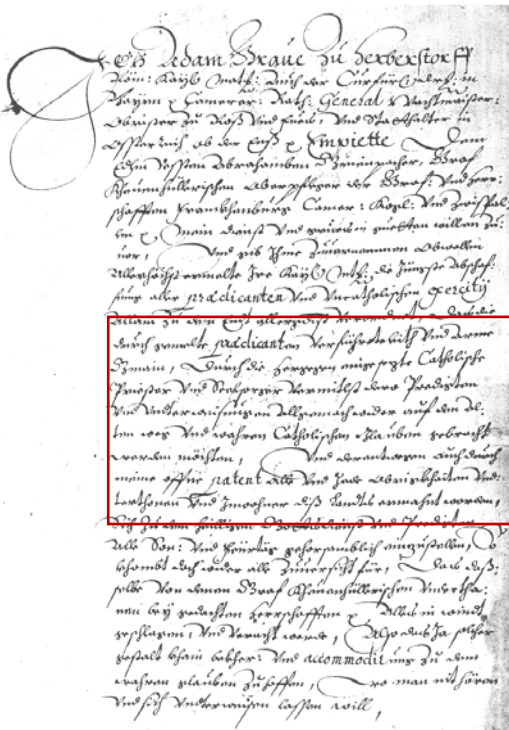 Ich Adam Graue zu Herberstorff
Röm: Kay: Matt: auch der Curfür: Dchl: in
Bayrn Camerer: Rath: General Wachtmaister:
Obrister zu Roß vnd Fueß, vnd Statthalter in
Össterreich ob der Enß Empiette Dem
Edln Vessten Abrahamben Grienpacher, Graf
Kheuenhüllerischen Oberpfleger der Graf: vnd Herr:
schafften Frankhenburg Camer: Kogl: vnd
mein dienst vnd grueß in
uor, vnd gib Ihme zuuernemmen Obwollen
Allerhöchst ermelte Ire Kay: Mtt: die Jüngste Abschaf:
fung aller prædicanten vnd vncatholischen exercitij
allain zu dem Endt allergdist verordnet, Das die
durch gemelte prædicanten verführte vnd arme
Gmain, Durch die hergegen eingesezte Catholische
Priester vnd Seelsorger vermitlst dero Predigten
vnd vnterweisungen allgemach wider auf den al:
ten weg vnd wahren Catholischen Glauben gebracht
werden möchten, vnd derentwegen auch durch
meine offne patent alle vnd Jede Obrigkhaiten vnd:
terthonen vnd Inwohner diß Landts ermahnt worden,
Sich zu dem heilligen Gottsdienst vnd Predigten
Alle Son: vnd Feürtäg gehorsamblich einzustellen, So
khombt doch wider alle Zuuersicht für, Das daß:
selbe von denen Graf Kheuenhüllerischen vnderthа:
nen bey gedachten Herrschafften Alles in windt
geschlagen, vnd veracht werde, Also das Ja solcher
gestalt khain bekher: vnd accommodirung zu dem
wahren glauben zuhoffen, wo man nit hören
vnd sich vnderweisen lassen will,